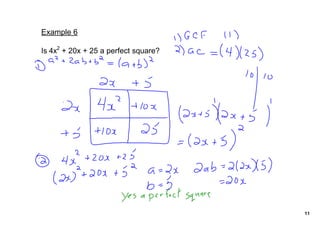 Example 6
Is 4x² + 20x + 25 a perfect square?
1) GCF (1)
2) ac = (4)(25)
10 | 10
① a² + 2ab + b² = (a+b)²
2x + 5
2x 4x² +10x
+5 +10x 25
(2x+5)¹(2x+5)¹
= (2x+5)²
② 4x² + 20x + 25
(2x)² + 20x + 5²
a = 2x
b = 5
2ab = 2(2x)(5)
= 20x
Yes a perfect square
11